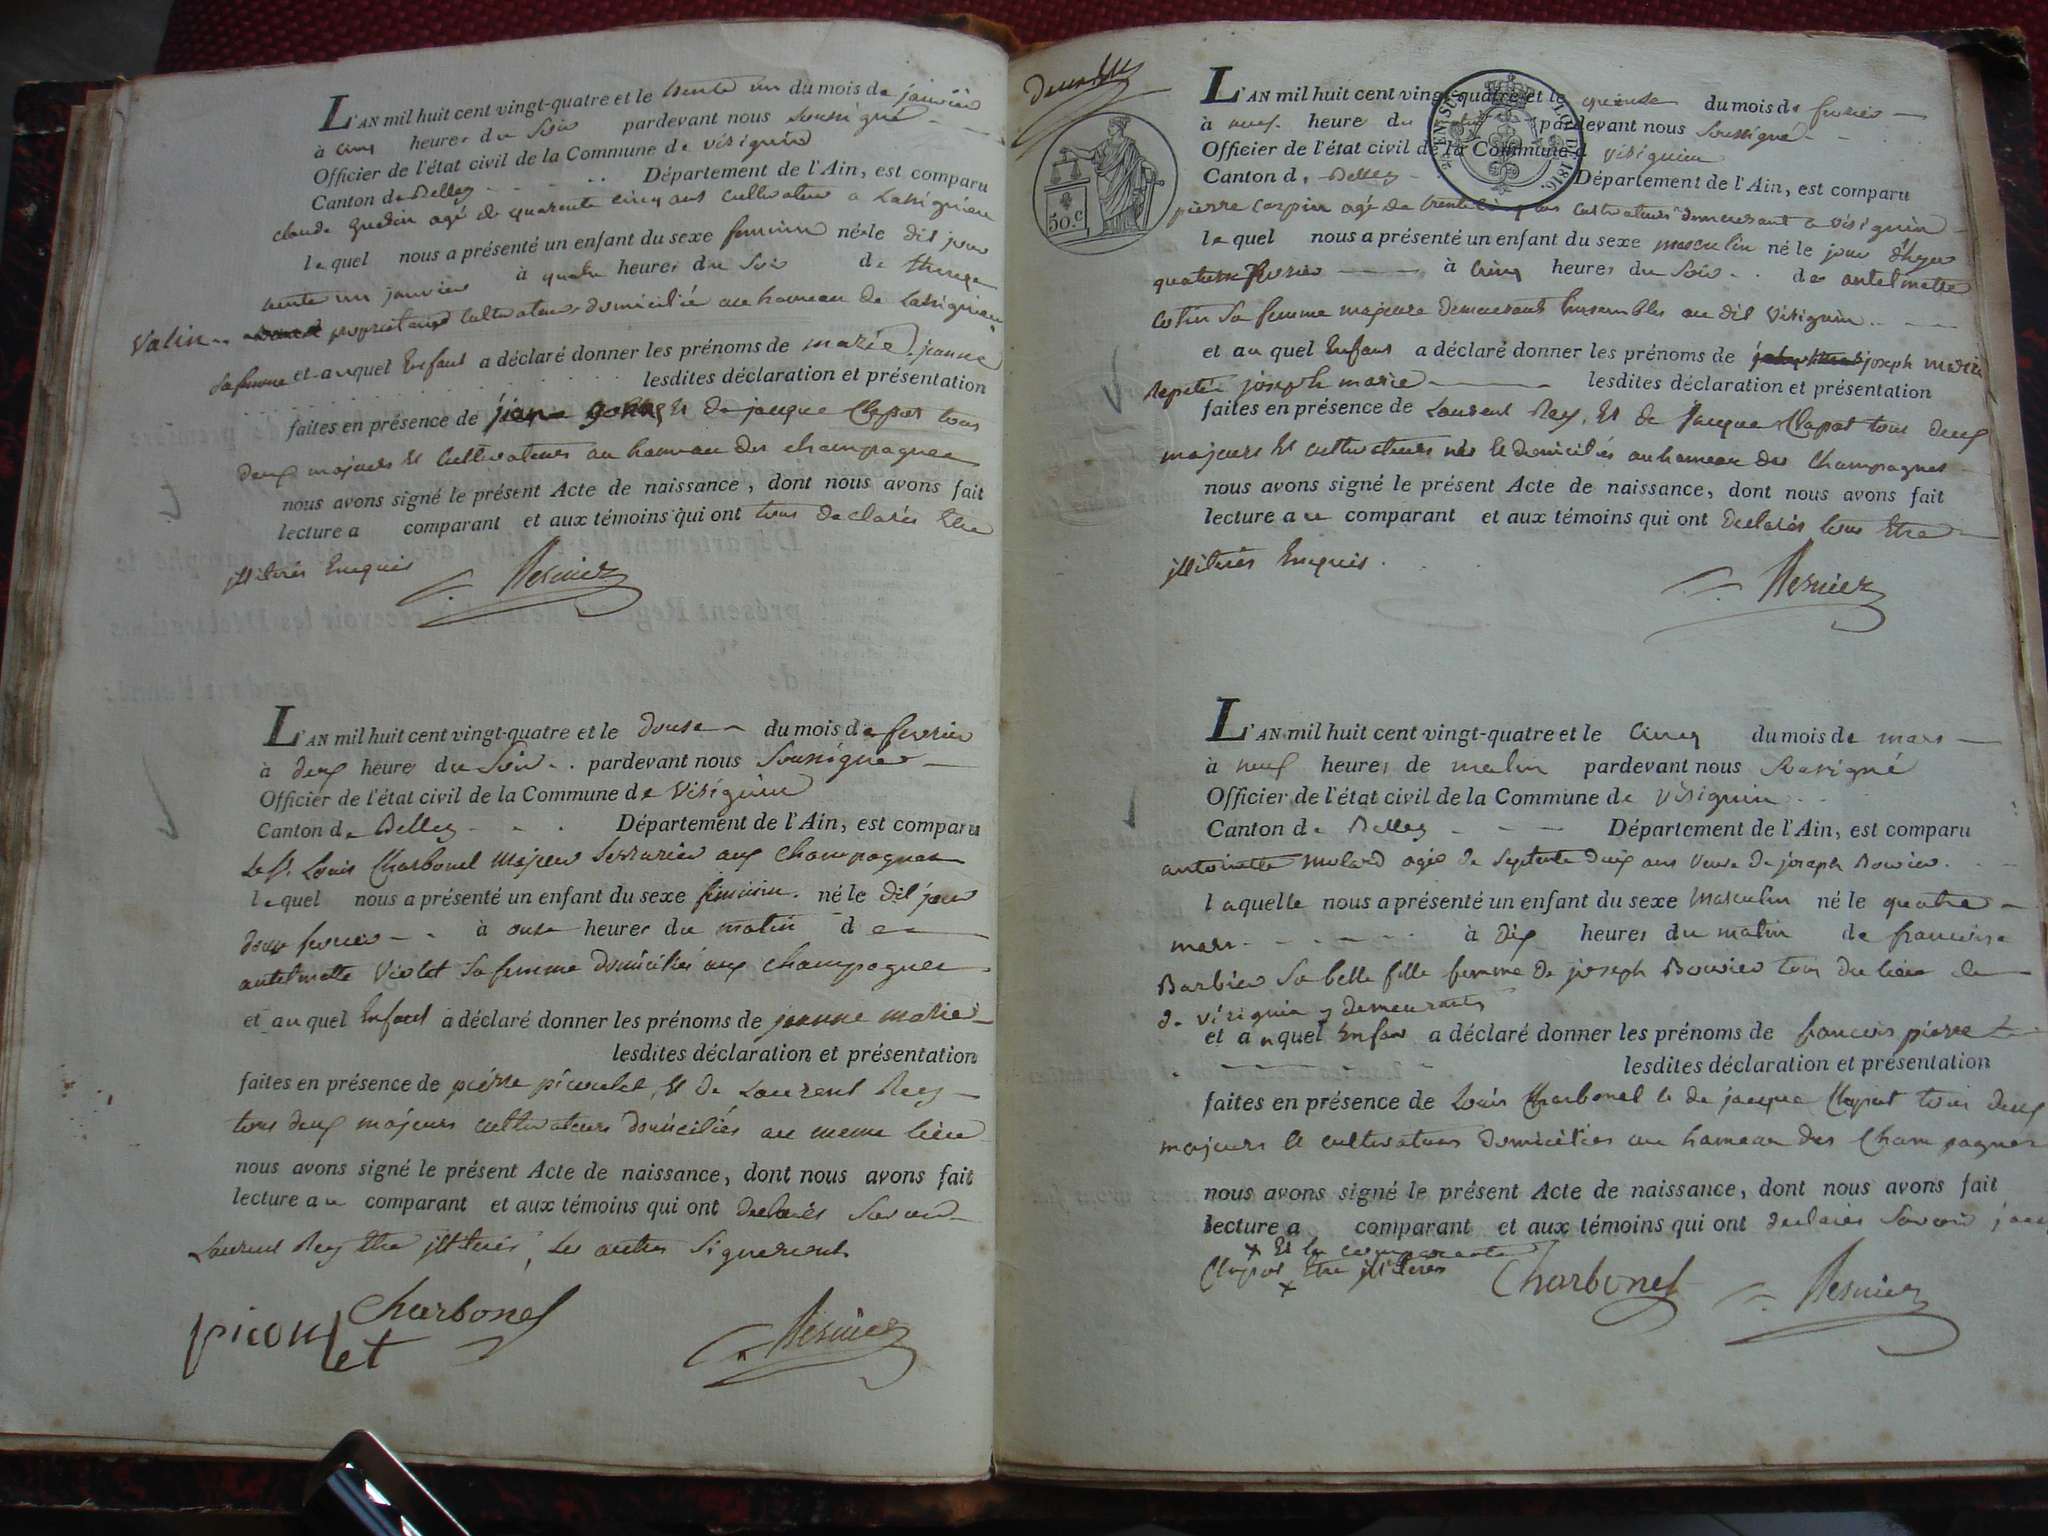 L'AN mil huit cent vingt-quatre et le trente un du mois de janvier
à cinq heures du Soir pardevant nous soussigné
Officier de l'état civil de la Commune de virignin
Canton de Belley Département de l'Ain, est comparu
claude agé de quarante cinq ans cultivateur a
le quel nous a présenté un enfant du sexe feminin né le dit jour
trente un janvier à quatre heures du Soir de
Valin propriétaires cultivateurs domiciliés au hameau de
sa femme et auquel Enfant a déclaré donner les prénoms de marie jeanne
lesdites déclaration et présentation
faites en présence de Et de jacque Clapot tous
deux majeurs Et Cultivateurs au hameau des champagnes
nous avons signé le présent Acte de naissance, dont nous avons fait
lecture a comparant et aux témoins qui ont tous declarés être
illiterés Enquis
L'AN mil huit cent vingt-quatre et le douse du mois de fevrier
à deux heures du Soir pardevant nous Soussigné
Officier de l'état civil de la Commune de Virignin
Canton de Belley Département de l'Ain, est comparu
Le Sr. Louis Charbonel Majeur Serrurier aux Champagnes
le quel nous a présenté un enfant du sexe feminin né le dit jour
douse fevrier à onse heures du matin de
antelmette Violet sa femme domiciliés aux Champagnes
et au quel Enfant a déclaré donner les prénoms de jeanne marie
lesdites déclaration et présentation
faites en présence de pierre picoulet, Et de Laurent Rey
tous deux majeurs cultivateurs domiciliés au meme lieu
nous avons signé le présent Acte de naissance, dont nous avons fait
lecture au comparant et aux témoins qui ont declarés savoir
Laurent Rey être illiteré, Les autres Signeront
Charbonel
picoulet
L'AN mil huit cent vingt-quatre et le quinse du mois de fevrier
à neuf heure du pardevant nous Soussigné
Officier de l'état civil de la Commune de virignin
Canton de Belley Département de l'Ain, est comparu
50.C
pierre carpin agé de trente cinq ans cultivateur demeurant a virignin
le quel nous a présenté un enfant du sexe masculin né le jour d'hyer
quatorse fevrier à cinq heures du Soir de antelmette
Cotin Sa femme majeure demeurant Ensembles au dit Virignin
et au quel Enfant a déclaré donner les prénoms de joseph marie
Repetée joseph marie lesdites déclaration et présentation
faites en présence de Laurent Rey, Et de Jacque Clapot tous deux
majeurs Et cultivateurs nés et domiciliés au hameau des Champagnes
nous avons signé le présent Acte de naissance, dont nous avons fait
lecture au comparant et aux témoins qui ont declarés tous être
illiterés Enquis.
L'AN mil huit cent vingt-quatre et le cinq du mois de mars
à neuf heures de matin pardevant nous Sousigné
Officier de l'état civil de la Commune de virignin
Canton de Belley Département de l'Ain, est comparu
antoinette molard agée de septente deux ans veuve de joseph Bouvier
laquelle nous a présenté un enfant du sexe Masculin né le quatre
mars à dix heures du matin de francoise
Barbier Sa belle fille femme de joseph Bouvier tous du lieu de
de virignin y demeurants
et a uquel Enfant a déclaré donner les prénoms de francois pierre
lesdites déclaration et présentation
faites en présence de Louis Charbonel et de jacque Clapot tous deux
majeurs et cultivateurs domiciliés au hameau des Champagnes
nous avons signé le présent Acte de naissance, dont nous avons fait
lecture a comparant et aux témoins qui ont declarés Savoir
x Et la comparante
Clapot être illiterés
x
Charbonel